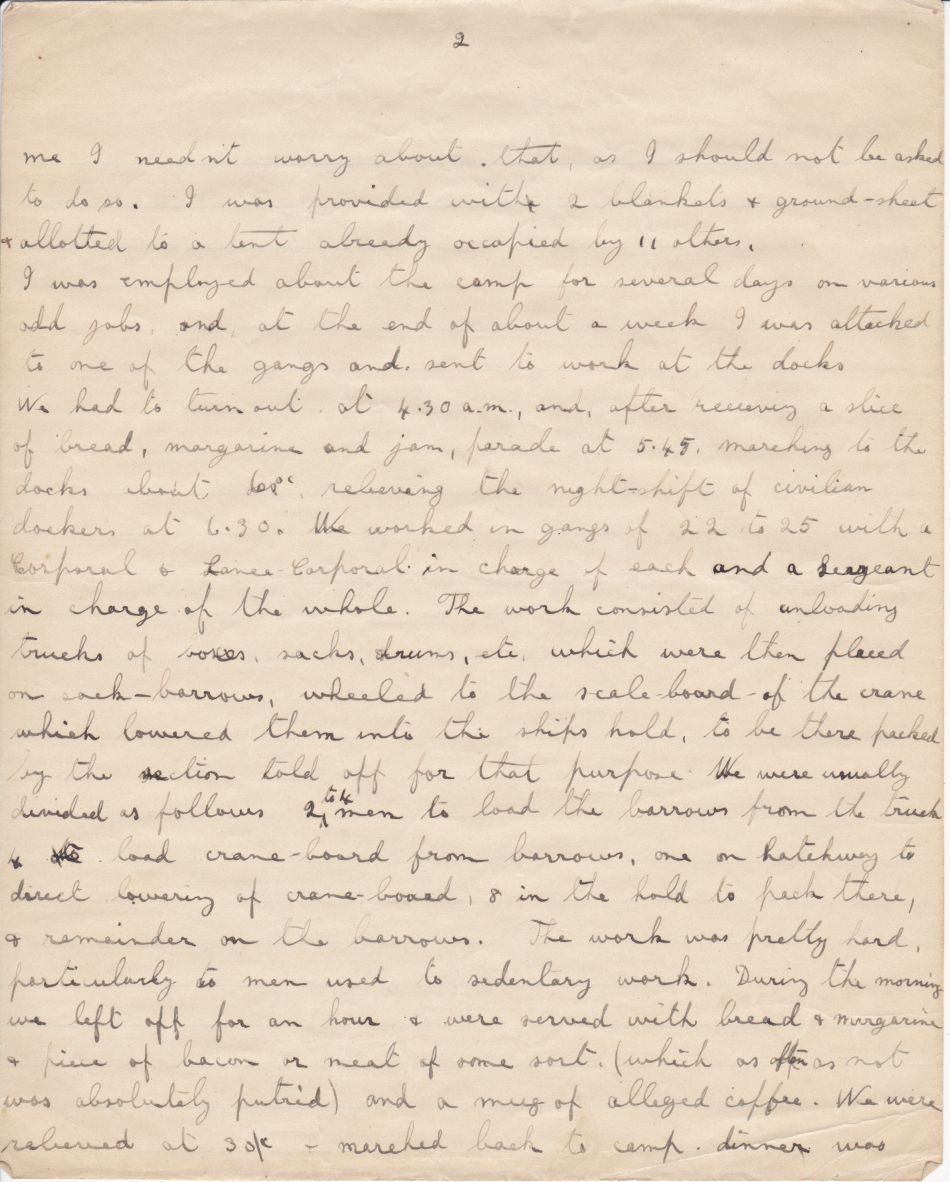 2
me I needn't worry about that, as I should not be asked
to do so. I was provided with 2 blankets & ground-sheet
& allotted to a tent already occupied by 11 others.
I was employed about the camp for several days on various
odd jobs, and, at the end of about a week I was attached
to one of the gangs and sent to work at the docks
We had to turn out at 4.30 a.m., and, after receiving a slice
of bread, margarine and jam, parade at 5.45, marching to the
docks about relieving the night-shift of civilian
dockers at 6.30. We worked in gangs of 22 to 25 with a
Corporal or Lance-Corporal in charge of each and a Sergeant
in charge of the whole. The work consisted of unloading
trucks of boxes, sacks, drums, etc, which were then placed
on sack-barrows, wheeled to the scale-board of the crane
which lowered them into the ships hold, to be there packed
by the section told off for that purpose. We were usually
divided as follows 2 to 4 men to load the barrows from the truck
4 to load crane-board from barrows, one on hatchway to
direct lowering of crane-board, 8 in the hold to pack there,
& remainder on the barrows. The work was pretty hard,
particularly to men used to sedentary work. During the morning
we left off for an hour & were served with bread & margarine
& piece of bacon or meat of some sort. (which as often as not
was absolutely putrid) and a mug of alleged coffee. We were
relieved at & marched back to camp. dinner was